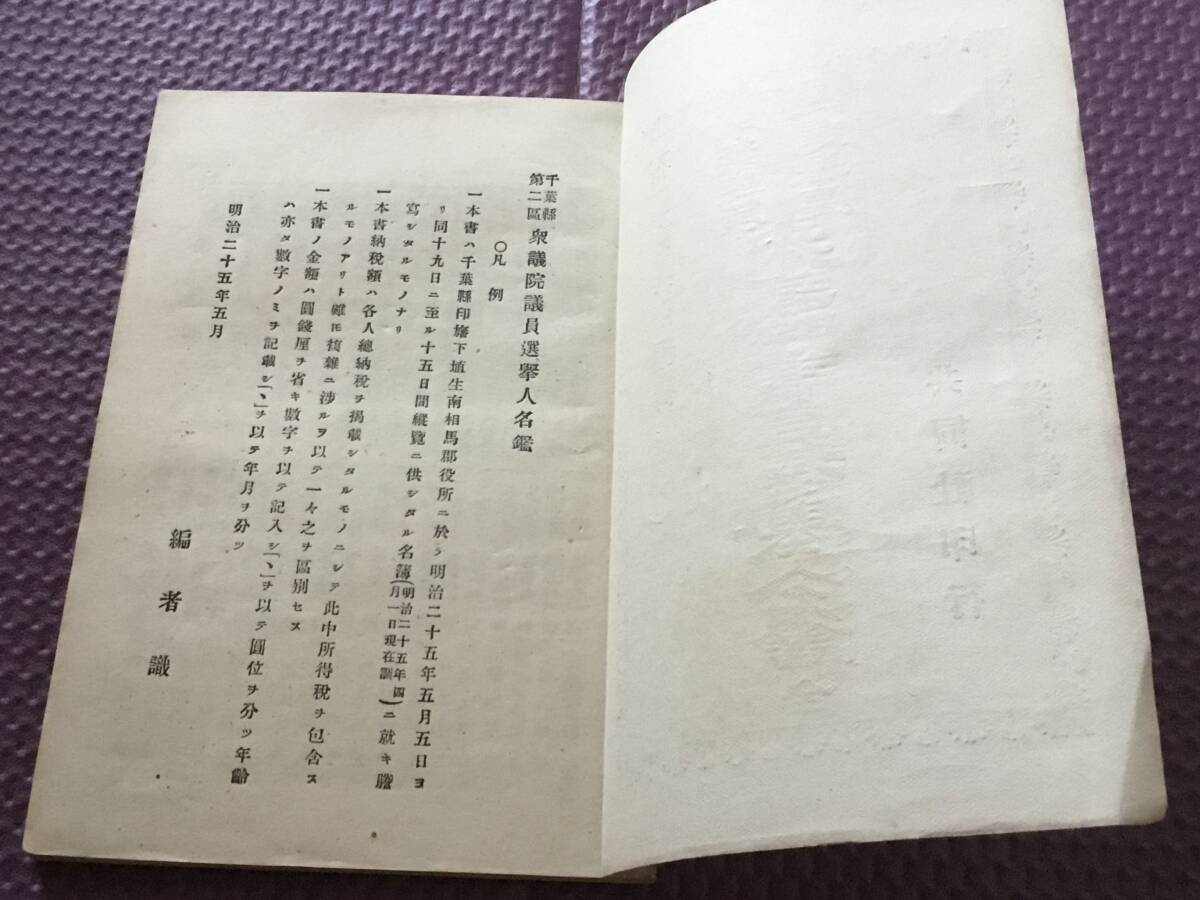 千葉縣第二區 衆議院議員選擧人名鑑
〇凡例
一本書ハ千葉縣印旛下埴生南相馬郡役所ニ於テ明治二十五年五月五日ヨ
リ同十九日ニ至ル十五日間縱覽ニ供シタル名簿(明治二十五年四月一日現在調)ニ就キ謄
寫シタルモノナリ
一本書納稅額ハ各人總納稅ヲ揭載シタルモノニシテ此中所得稅ヲ包含ス
ルモノアリト雖モ複雜ニ涉ルヲ以テ一々之ヲ區別セス
一本書ノ金額ハ圓錢厘ヲ省キ數字ヲ以テ記入シ「、」ヲ以テ圓位ヲ分ツ年齡
ハ亦タ數字ノミヲ記載シ「、」ヲ以テ年月ヲ分ツ
明治二十五年五月
編者識